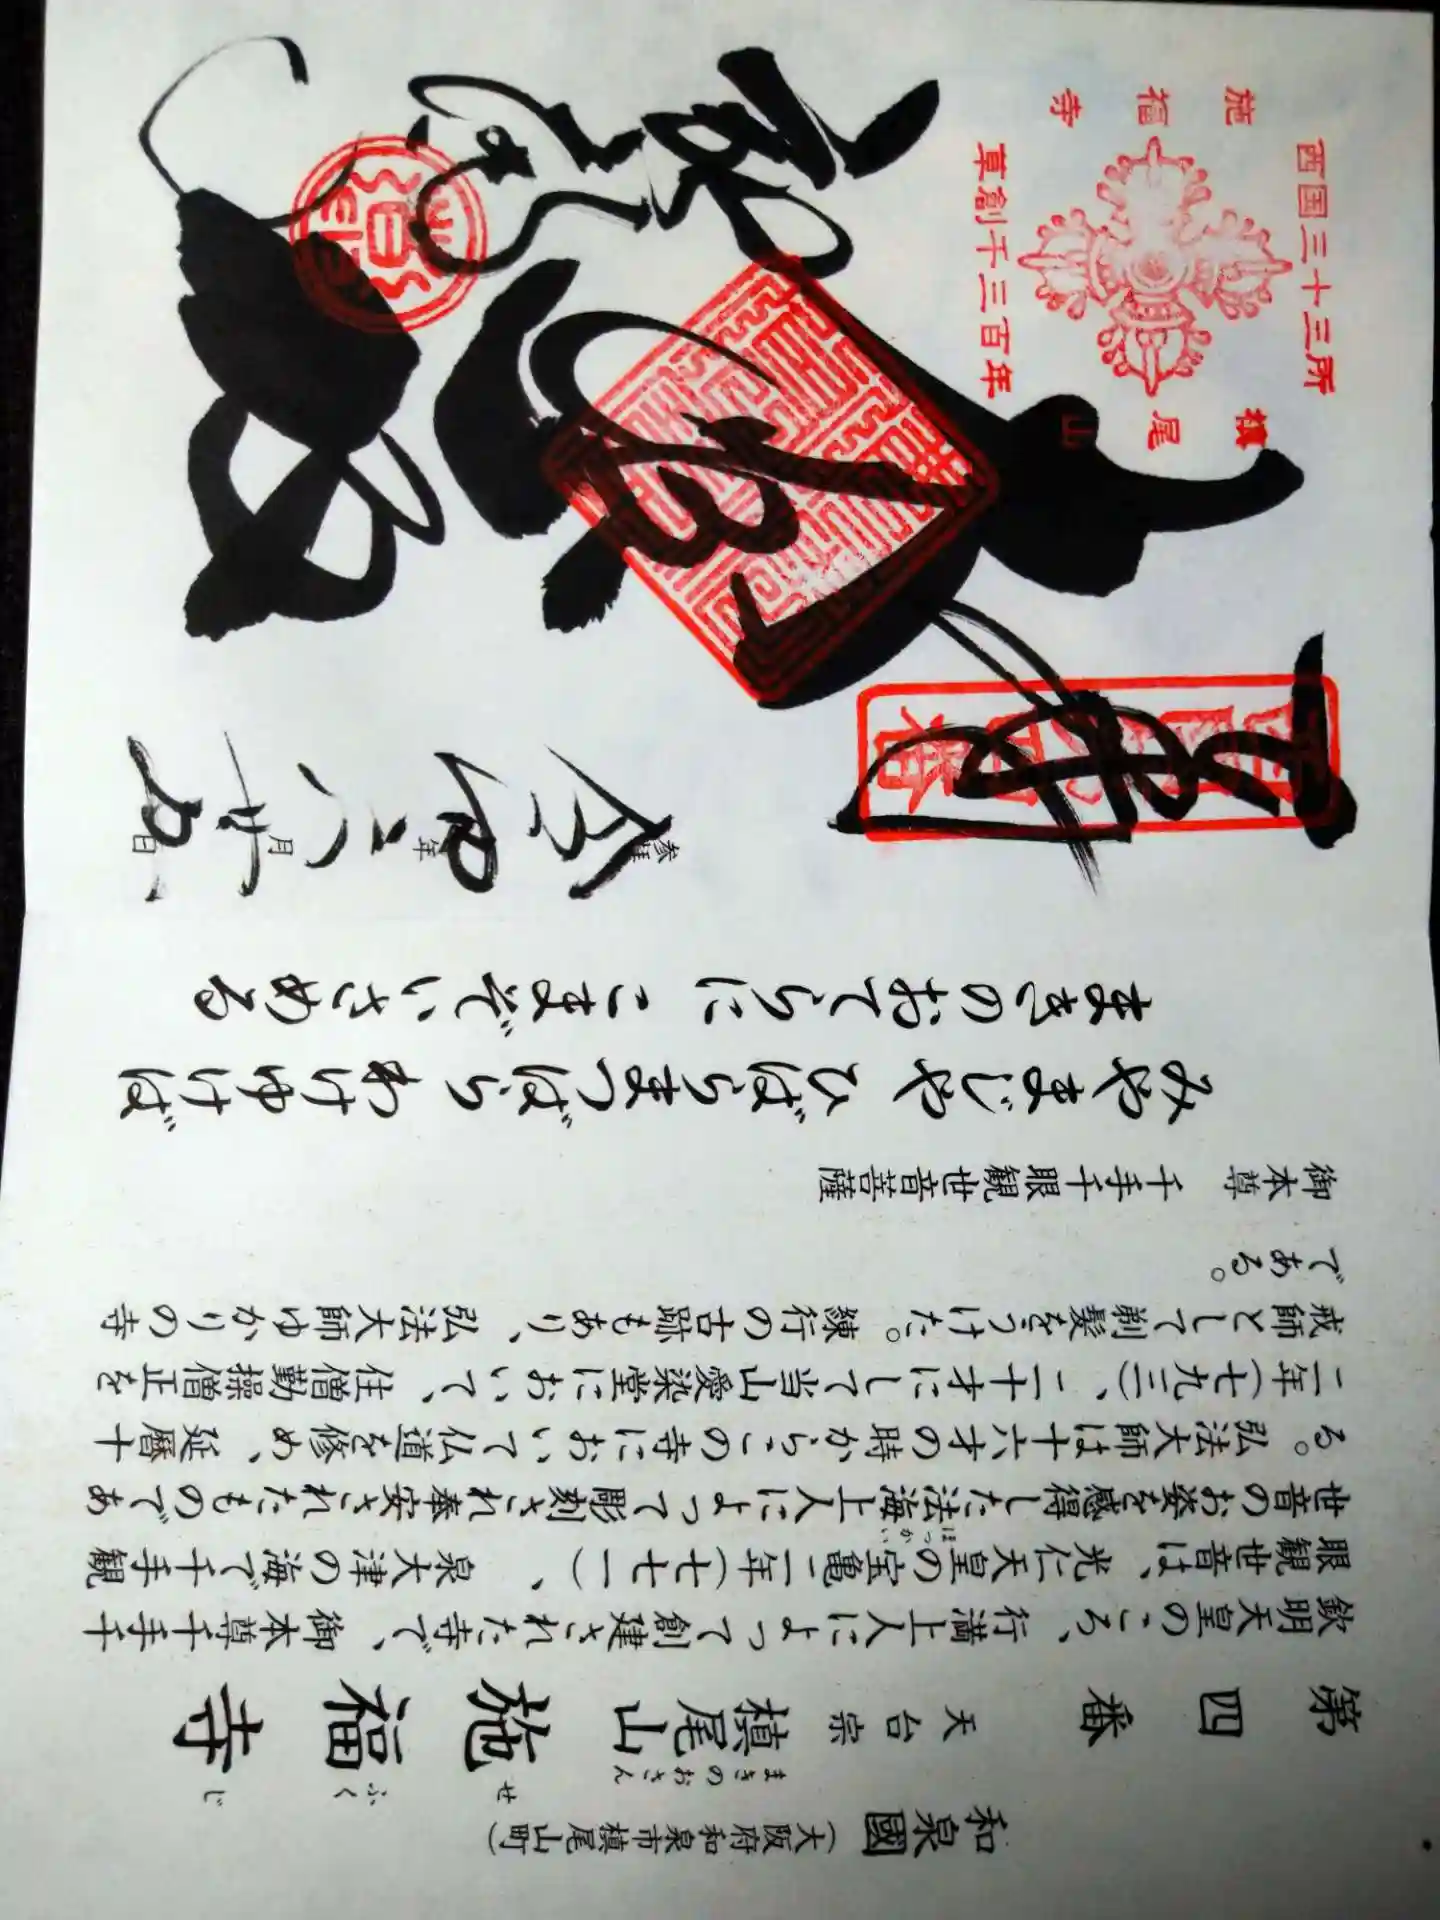 和泉國（大阪府和泉市槙尾山町）
第四番 天台宗 槙尾山 施福寺
まきのおさん せ ふく じ
欽明天皇のころ、行満上人によって創建された寺で、御本尊千手千
眼観世音は、光仁天皇の宝亀二年（七七一）、泉大津の海で千手観
ほっかい
世音のお姿を感得した法海上人によって彫刻され奉安されたものであ
る。弘法大師は十六才の時からこの寺において仏道を修め、延暦十
二年（七九三）、二十才にして当山愛染堂において、住僧勤操僧正を
戒師として剃髪をうけた。練行の古跡もあり、弘法大師ゆかりの寺
である。
御本尊 千手千眼観世音菩薩
みやまじや ひばらまつばら わけゆけば
まきのおてらに こまぞいさめる
西国三十三所
草創千三百年
槙尾山
施福寺
西国第四番
参拝
令和 年 八月 廿 日